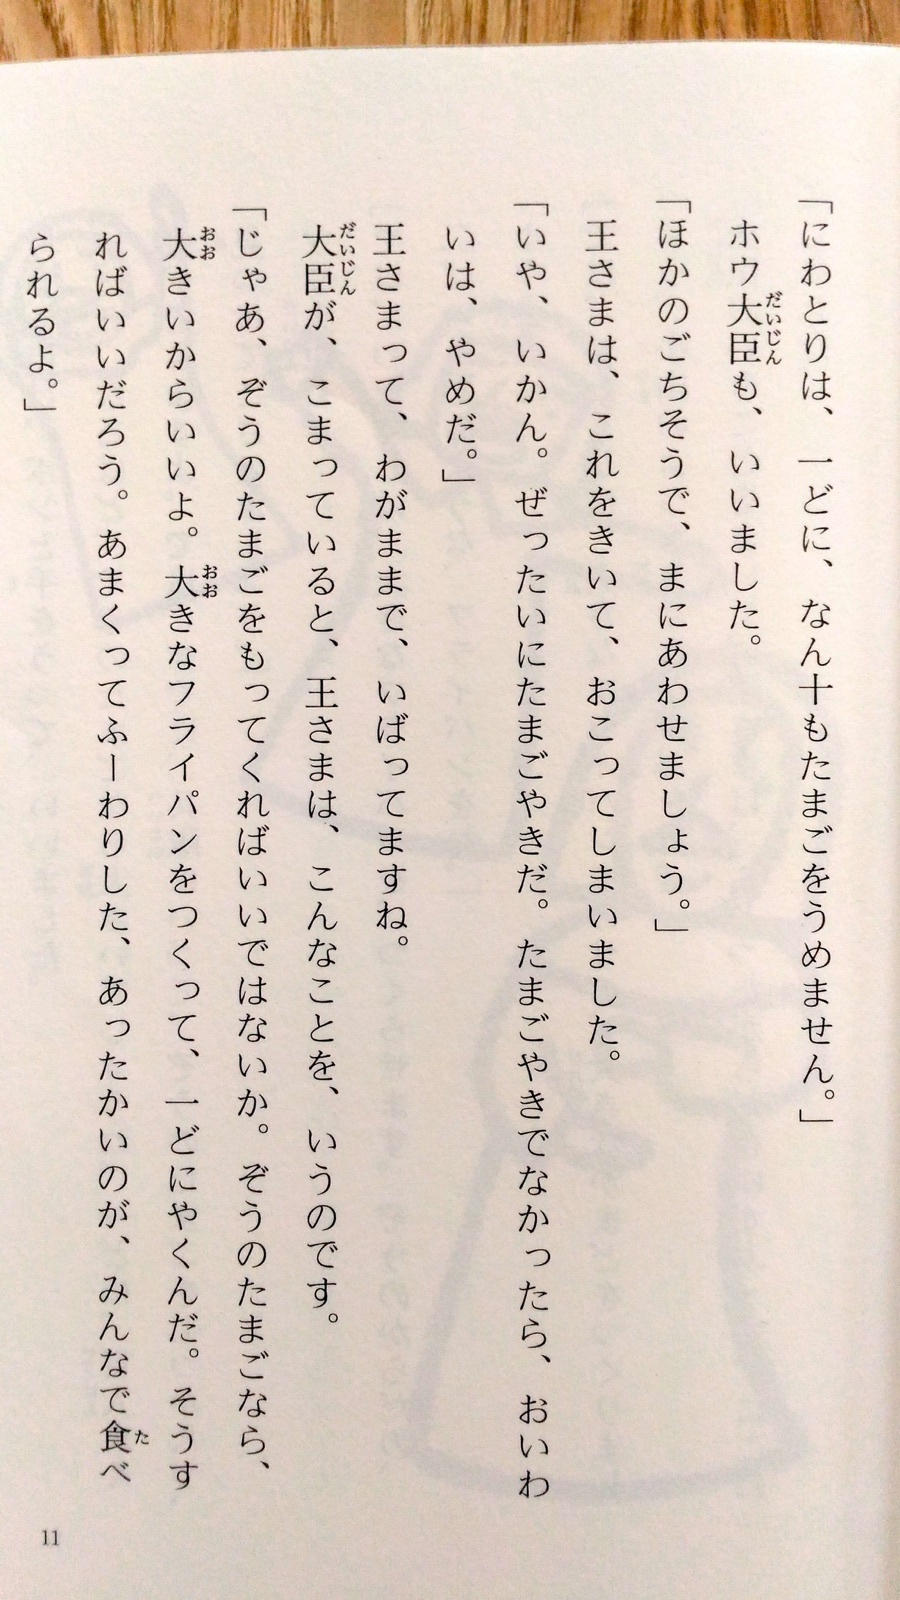 「にわとりは、一どに、なん十もたまごをうめません。」
ホウ大臣も、いいました。
「ほかのごちそうで、まにあわせましょう。」
王さまは、これをきいて、おこってしまいました。
「いや、いかん。ぜったいにたまごやきだ。たまごやきでなかったら、おいわ
いは、やめだ。」
王さまって、わがままで、いばってますね。
大臣が、こまっていると、王さまは、こんなことを、いうのです。
「じゃあ、ぞうのたまごをもってくればいいではないか。ぞうのたまごなら、
大きいからいいよ。大きなフライパンをつくって、一どにやくんだ。そうす
ればいいだろう。あまくってふーわりした、あったかいのが、みんなで食べ
られるよ。」
だいじん
だいじん
おお
おお
た
11